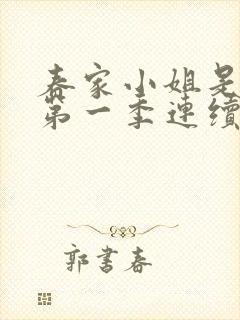 春家小姐是
第一季連續
郭書春